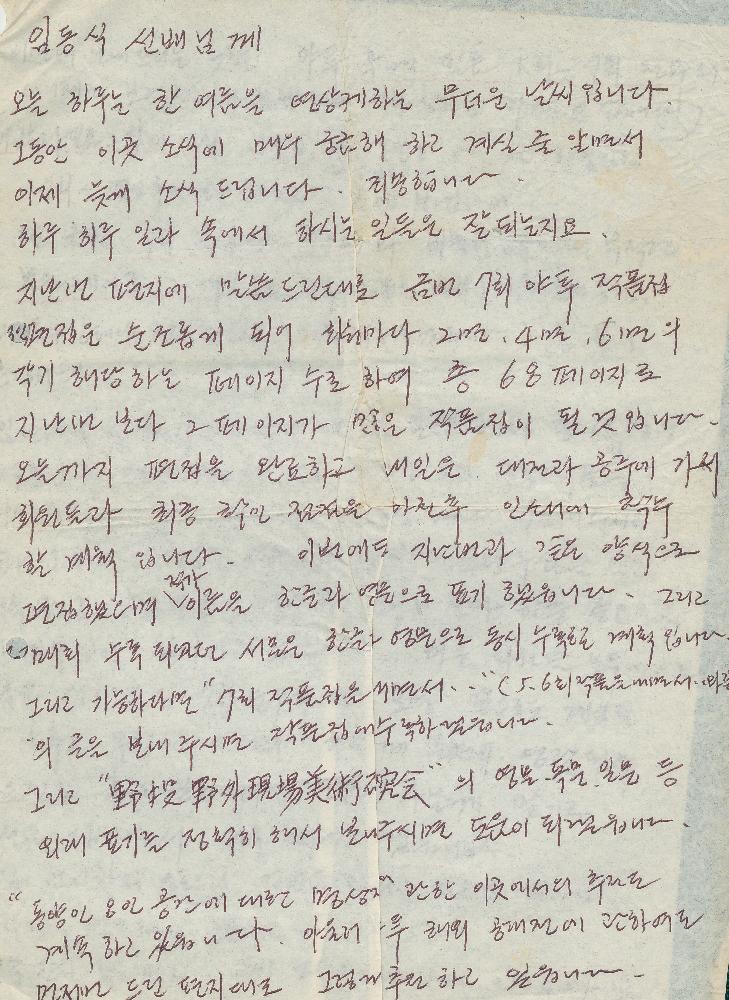 임동식 선배님께
오늘 하루는 한 여름을 연상케하는 무더운 날씨 입니다.
그동안 이곳 소식에 매우 궁금해 하고 계실 줄 알면서
이제 늦게 소식 드립니다. 죄송합니다.
하루 하루 일과 속에서 하시는 일들은 잘 되는지요.
지난번 편지에 말씀드린대로 금번 7회 야투 작품집
편집은 순조롭게 되어 회원마다 2면, 4면, 6면의
각기 해당하는 페이지 수로 하여 총 68페이지로
지난번 보다 2페이지가 많은 작품집이 될 것입니다.
오늘까지 편집을 완료하고 내일은 대전과 공주에 가서
회원들과 최종 확인 점검을 마친후 인쇄에 착수
할 계획 입니다. 이번에도 지난번과 같은 양식으로
편집했으며 작가 이름을 한글과 영문으로 표기 했습니다. 그리고
매회 수록 되었던 서문은 한글과 영문으로 동시 수록할 계획 입니다.
그리고 가능하다면 "7회 작품집을 내면서.." (5.6회 작품을 내면서..
의 글을 보내 주시면 작품집에 수록하겠습니다.
그리고 "野投 野外現場美術硏究会" 의 영문 독문 일문 등
외래 표기를 정확히 해서 보내주시면 도움이 되겠습니다.
"동양인 8인 공간에 대한 명상" 관한 이곳에서의 추진도
계속 하고 있습니다. 아울러 해외 공대전에 관하여도
먼저번 드린 편지대로 그렇게 추진 하고 있습니다.